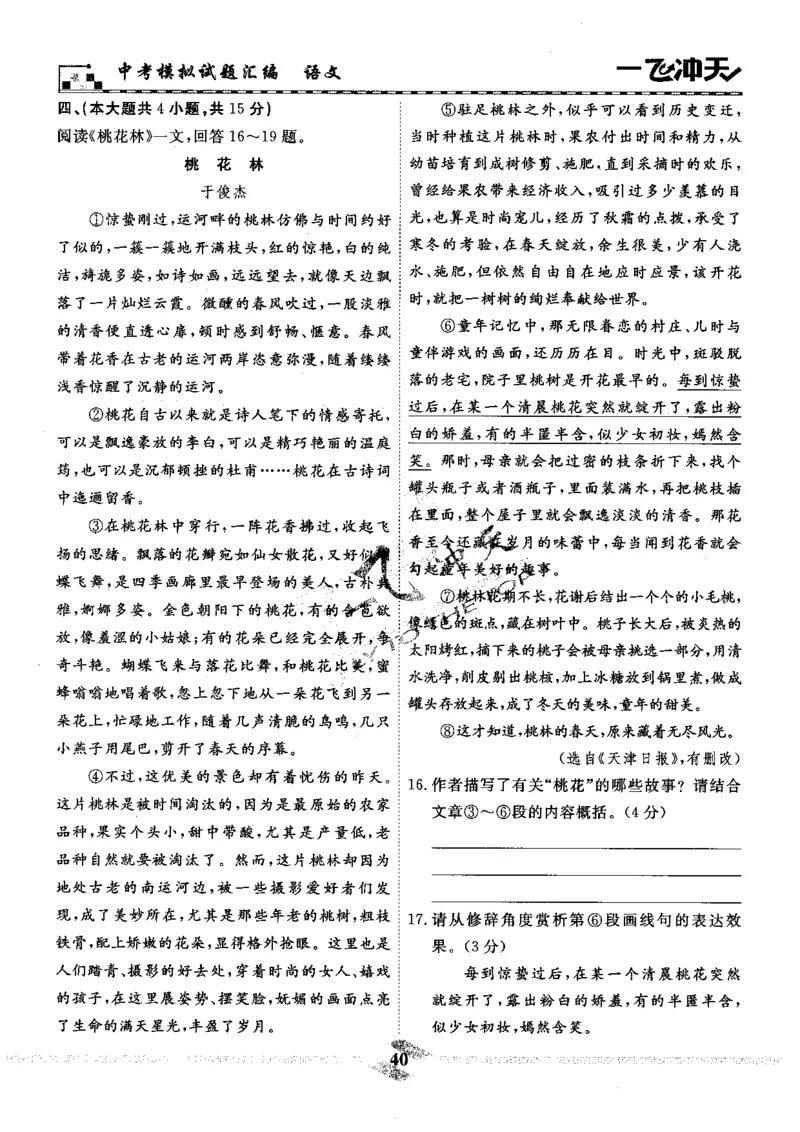 中考模拟试题汇编 语文
一飞冲天
四、(本大题共4小题,共15分)
阅读《桃花林》一文,回答16～19题。
桃 花 林
于俊杰
①惊蛰刚过,运河畔的桃林仿佛与时间约好
了似的,一簇一簇地开满枝头,红的惊艳,白的纯
洁,旖旎多姿,如诗如画,远远望去,就像天边飘
落了一片灿烂云霞。微醺的春风吹过,一股淡雅
的清香便直透心扉,顿时感到舒畅、惬意。春风
带着花香在古老的运河两岸恣意弥漫,随着缕缕
浅香惊醒了沉静的运河。
②桃花自古以来就是诗人笔下的情感寄托,
可以是飘逸豪放的李白,可以是精巧艳丽的温庭
筠,也可以是沉郁顿挫的杜甫……桃花在古诗词
中迤逦留香。
③在桃花林中穿行,一阵花香拂过,收起飞
扬的思绪。飘落的花瓣宛如仙女散花,又好似
蝶飞舞,是四季画廊里最早登场的美人,古朴典
雅,婀娜多姿。金色朝阳下的桃花,有的含苞欲
放,像羞涩的小姑娘;有的花朵已经完全展开,争
奇斗艳。蝴蝶飞来与落花比舞,和桃花比美,蜜
蜂嗡嗡地唱着歌,忽上忽下地从一朵花飞到另一
朵花上,忙碌地工作,随着几声清脆的鸟鸣,几只
小燕子用尾巴,剪开了春天的序幕。
④不过,这优美的景色却有着忧伤的昨天。
这片桃林是被时间淘汰的,因为是最原始的农家
品种,果实个头小,甜中带酸,尤其是产量低,老
品种自然就要被淘汰了。然而,这片桃林却因为
地处古老的南运河边,被一些摄影爱好者们发
现,成了美妙所在,尤其是那些年老的桃树,粗枝
铁骨,配上娇嫩的花朵,显得格外抢眼。这里也是
人们踏青、摄影的好去处,穿着时尚的女人、嬉戏
的孩子,在这里展姿势、摆笑脸,妩媚的画面点亮
了生命的满天星光,丰盈了岁月。
⑤驻足桃林之外,似乎可以看到历史变迁,
当时种植这片桃林时,果农付出时间和精力,从
幼苗培育到成树修剪、施肥,直到采摘时的欢乐,
曾经给果农带来经济收入,吸引过多少羡慕的目
光,也算是时尚宠儿,经历了秋霜的点拨,承受了
寒冬的考验,在春天绽放,余生很美,少有人浇
水、施肥,但依然自由自在地应时应景,该开花
时,就把一树树的绚烂奉献给世界。
⑥童年记忆中,那无限眷恋的村庄、儿时与
童伴游戏的画面,还历历在目。时光中,斑驳脱
落的老宅,院子里桃树是开花最早的。每到惊蛰
过后,在某一个清晨桃花突然就绽开了,露出粉
白的娇羞,有的半匿半含,似少女初妆,嫣然含
笑。那时,母亲就会把过密的枝条折下来,找个
罐头瓶子或者酒瓶子,里面装满水,再把桃枝插
在里面,整个屋子里就会飘逸淡淡的清香。那花
香至今还藏在岁月的味蕾中,每当闻到花香就会
勾起童年美好的趣事。
⑦桃林花期不长,花谢后结出一个个的小毛桃,
像褐色的斑点,藏在树叶中。桃子长大后,被炎热的
太阳烤红,摘下来的桃子会被母亲挑选一部分,用清
水洗净,削皮剔出桃核,加上冰糖放到锅里煮,做成
罐头存放起来,成了冬天的美味,童年的甜美。
⑧这才知道,桃林的春天,原来藏着无尽风光。
(选自《天津日报》,有删改)
16.作者描写了有关“桃花”的哪些故事？请结合
文章③～⑥段的内容概括。(4分)
17.请从修辞角度赏析第⑥段画线句的表达效
果。(3分)
每到惊蛰过后,在某一个清晨桃花突然
就绽开了,露出粉白的娇羞,有的半匿半含,
似少女初妆,嫣然含笑。
40